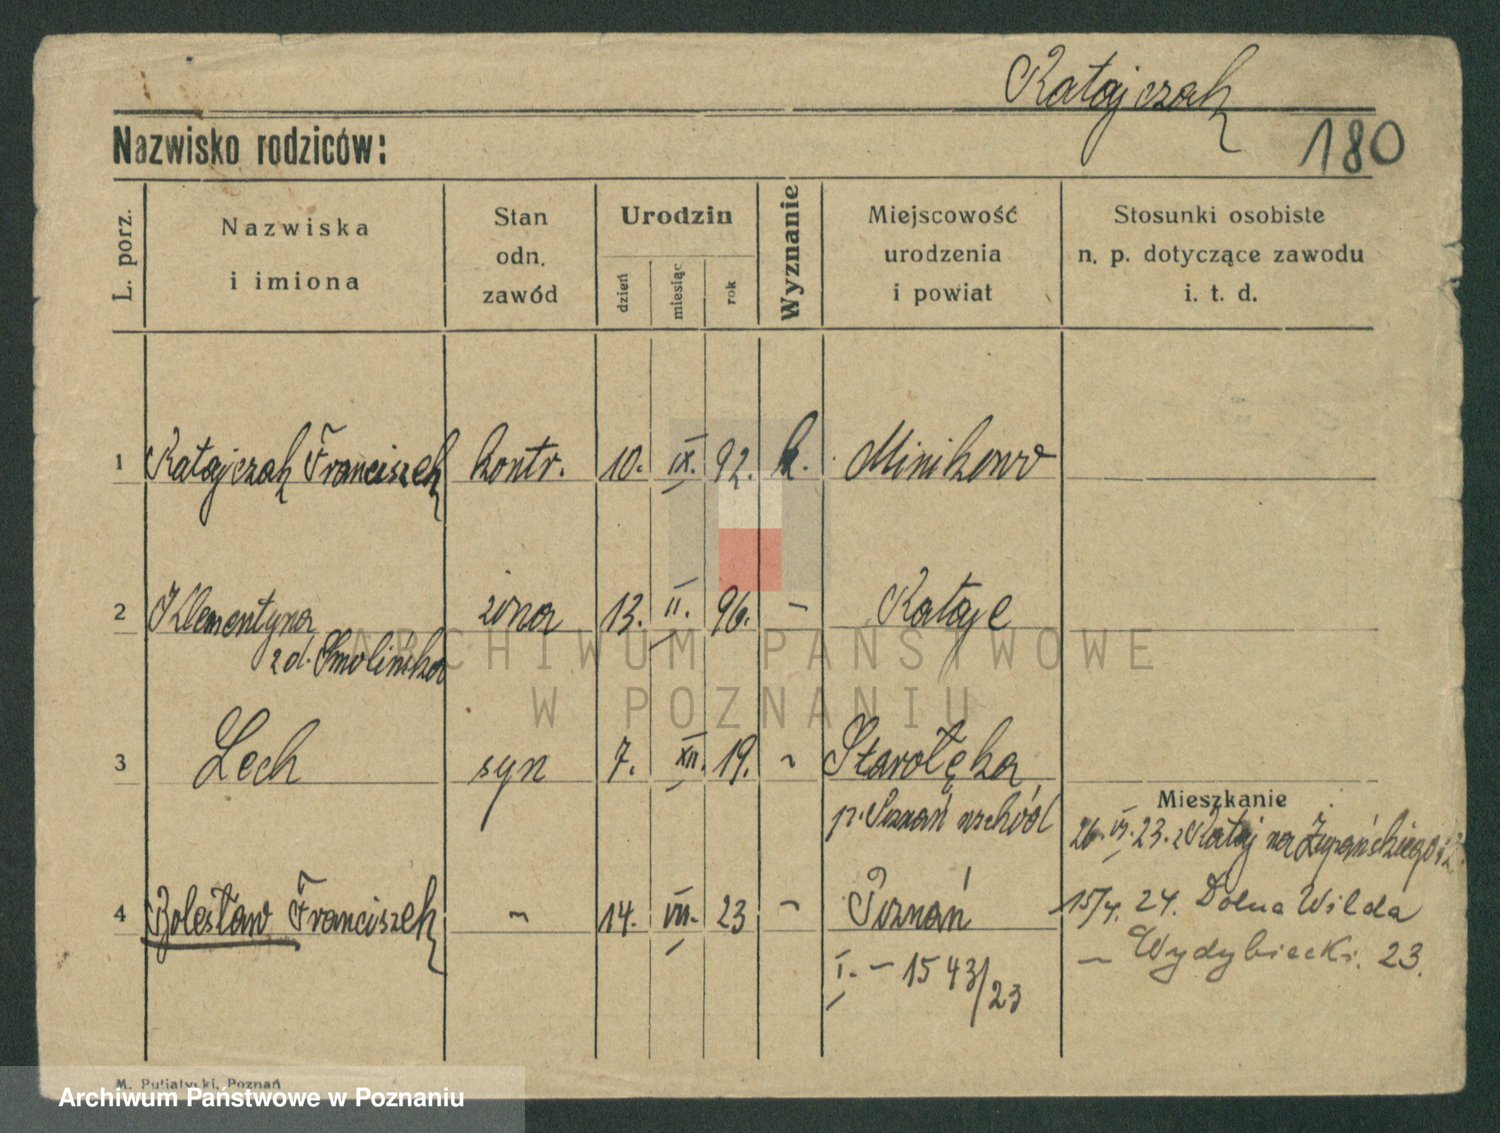 Ratajczak
180
Nazwisko rodziców:
L. porz.
Nazwiska
i imiona
Stan
odn.
zawód
Urodzin
dzień
miesiąc
rok
Wyznanie
Miejscowość
urodzenia
i powiat
Stosunki osobiste
n. p. dotyczące zawodu
i. t. d.
1 Ratajczak Franciszek kontr. 10. IX. 92. k. Minikowo
2 Klementyna żona 13. II. 96. – Rataje
zd. Smolińska
3 Lech syn 7. XII. 19. ~ Starołęka
p. Poznań wschód
Mieszkanie
26. VI. 23. z Rataj na Żupańskiego 12
4 Bolesław Franciszek ~ 14. VII. 23 ~ Poznań
15/4. 24. Dolna Wilda
I. – 1543/23
— Wydybiecki. 23.
M. Putiatycki, Poznań
ARCHIWUM PAŃSTWOWE
W POZNANIU
Archiwum Państwowe w Poznaniu